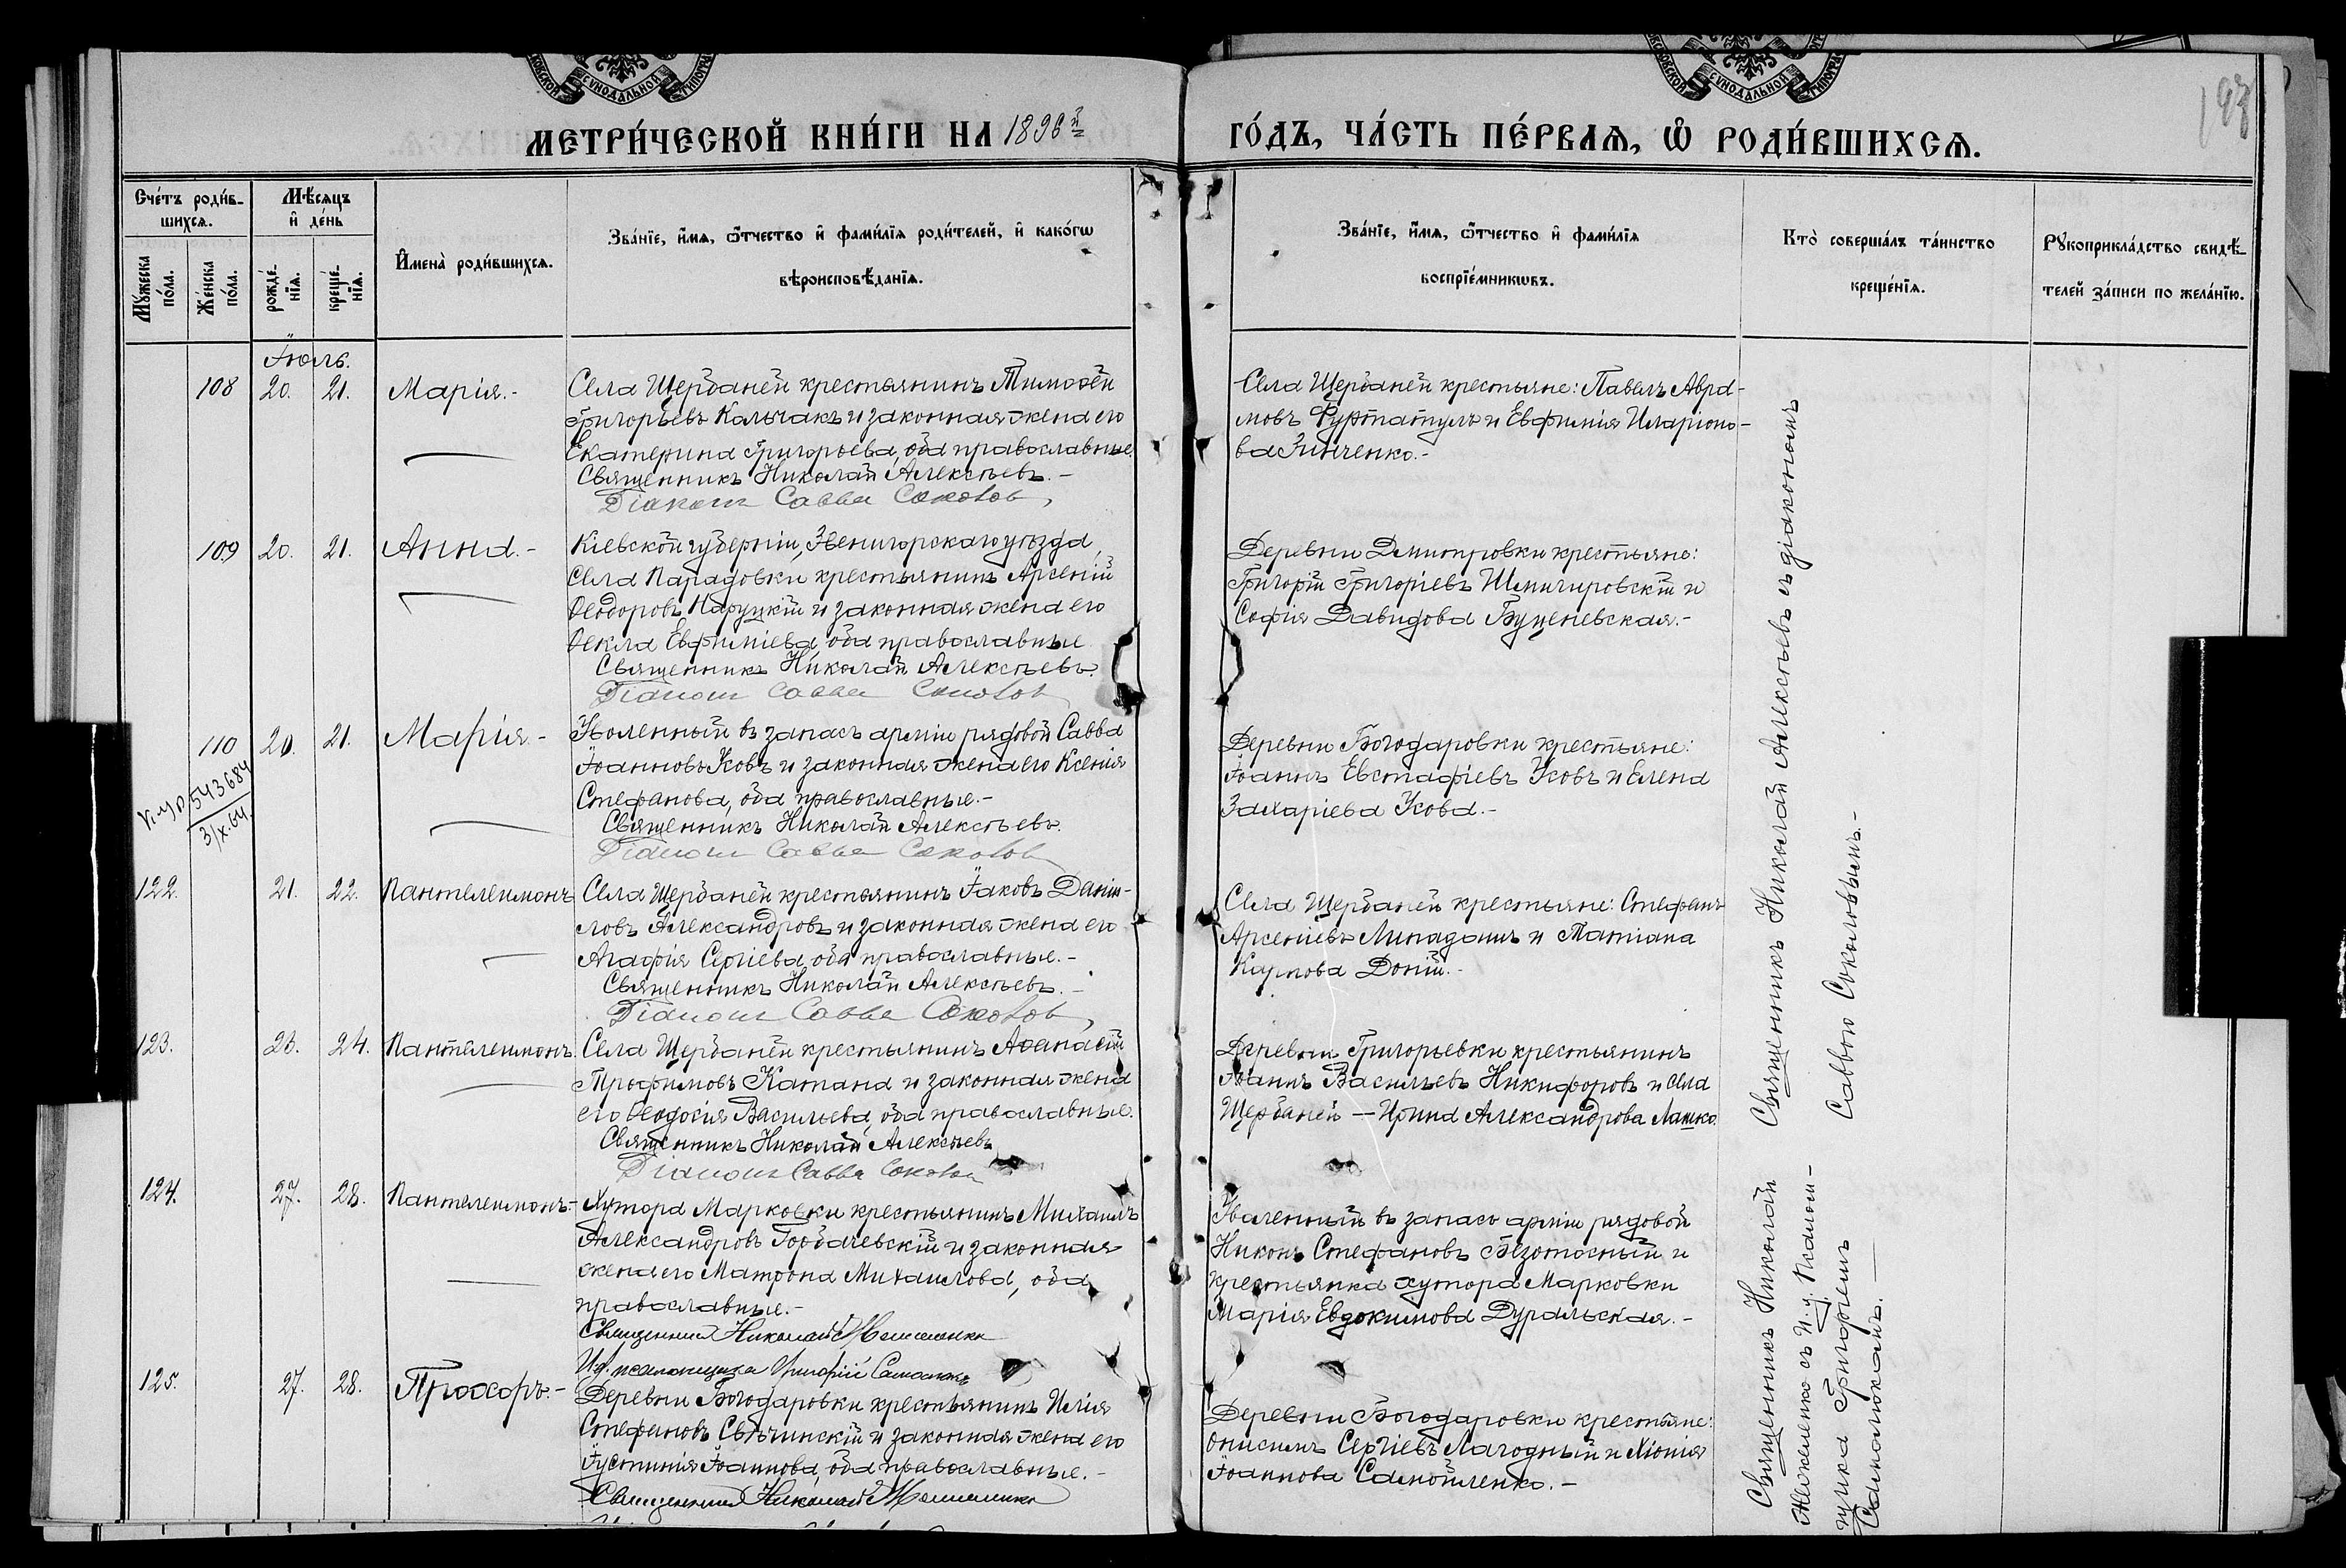 МЕТРИ́ЧЕСКОЙ КНИ́ГИ НА 1896й
ГО́ДЪ, ЧА́СТЬ ПЕ́РВАѦ, Ѡ҆ РОДИ́ВШИХСѦ.
Сче́тъ роди́в-
шихсѧ.
Мѣ́сѧцъ
и҆ де́нь
Мꙋ́жеска
по́ла.
Же́нска
по́ла.
рожде́-
нїѧ.
креще́-
нїѧ.
И҆мена̀ роди́вшихсѧ.
Зва́нїе, и҆́мѧ, ѻ҆́тчество и҆ фами́лїѧ роди́телей, и҆ како́гѡ
вѣроисповѣ́данїѧ.
Зва́нїе, и҆́мѧ, ѻ҆́тчество и҆ фами́лїѧ
воспрїе́мникѡвъ.
Кто̀ соверша́лъ та́инство
креще́нїѧ.
Рꙋкоприкла́дство свидѣ́-
телей за́писи по жела́нїю.
Іюль.
108 20. 21. Марія.-
Села Щербаней крестьянинъ Тимоѳей
Григорьевъ Кальчакъ и законная жена его
Екатерина Григорьева, оба православные.
Священникъ Николай Алексѣевъ.-
Діаконъ Савва Соколов,
Села Щербаней крестьяне: Павелъ Авра-
мовъ Фуртатулъ и Евфимія Иларіоно-
ва Зинченко.-
109 20. 21. Анна.-
Кіевской губерніи, Звенигорскаго уѣзда,
села Парадовки крестьянинъ Арсеній
Ѳеодоровъ Паруцкій и законная жена его
Ѳекла Евфиміева, оба православные
Священникъ Николай Алексѣевъ.
Діаконъ Савва Соколов
Деревни Дмитровки крестьяне:
Григорій Григоріевъ Шмигировскій и
Софія Давидова Буценевская.-
110 20. 21. Марія.-
Уволенный въ запасъ арміи рядовой Савва
Іоанновъ Усовъ и законная жена его Ксенія
Стефанова, оба православные.-
Священникъ Николай Алексѣевъ.
Діаконъ Савва Соколов
543684
3/X.64.
Деревни Богодаровки крестьяне:
Іоаннъ Евстафіевъ Усовъ и Елена
Захаріева Усова.-
122. 21. 22. Пантелеимонъ
Села Щербаней крестьянинъ Іаковъ Даніи-
ловъ Александровъ и законная жена его
Агафія Сергіева, оба православные.-
Священникъ Николай Алексѣевъ.-
Діаконъ Савва Соколов,
Села Щербаней крестьяне: Стефанъ
Арсеніевъ Липаданъ и Татіана
Карпова Доній.-
123. 23. 24. Пантелеимонъ.
Села Щербаней крестьянинъ Аѳанасій
Трофимовъ Катана и законная жена
его Ѳеодосія Васильева, оба православные.
Священникъ Николай Алексѣевъ
Діаконъ Савва Соколов
Деревни Григорьевки крестьянинъ
Іоаннъ Васильевъ Никифоровъ и села
Щербаней — Ирина Александрова Лашко.
124. 27. 28. Пантелеимонъ.-
Хутора Марковки крестьянинъ Михаилъ
Александровъ Горбачевскій и законная
жена его Матрона Михаилова, оба
православные.-
Священникъ Николай
И.д. псаломщика Григорій
Уволенный въ запасъ арміи рядовой
Никонъ Стефановъ Безотосный и
крестьянка хутора Марковки
Марія Евдокимова Дуральская.-
125. 27. 28. Прохоръ.-
Деревни Богодаровки крестьянинъ Илія
Стефановъ Свѣчинскій и законная жена его
Іустинія Іоаннова, оба православные.-
Священникъ Николай
Деревни Богодаровки крестьяне:
Онисимъ Сергіевъ Лагодный и Хіонія
Іоаннова Самойленко.-
Священникъ Николай Алексѣевъ съ діакономъ
Саввою Соколовымъ.-
Священникъ Николай
съ И.д. псалом-
щика Григоріемъ